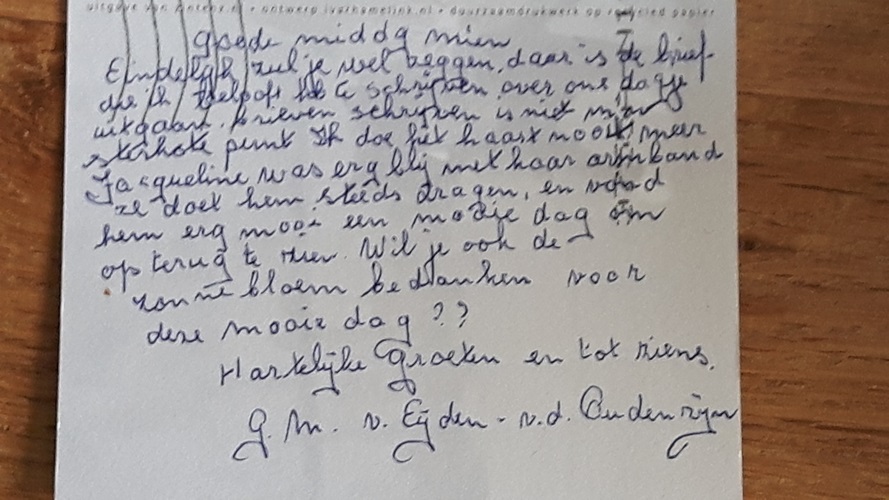 uitgave van zintenz.nl • ontwerp ivorhamelink.nl • duurzaamdrukwerk op recycled papier
goede middg mien
Eindelijk zul je wel zeggen, daar is de brief
die ik beloft te schrijven over ons dagje
uitgaan. brieven schrijven is niet mijn
sterkste punt Ik doe het haast nooit meer
Jacqueline was erg blij met haar armband
ze doet hem steeds dragen, en vond
hem erg mooi een mooie dag om
op terug te zien. Wil je ook de
zonnebloem bedanken voor
deze mooie dag ??
Hartelijke Groeten en tot ziens.
G. M. v. Eijden - v.d. Oudenrijn